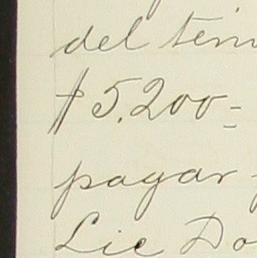 del
$5.200=
pagar
Lic Do